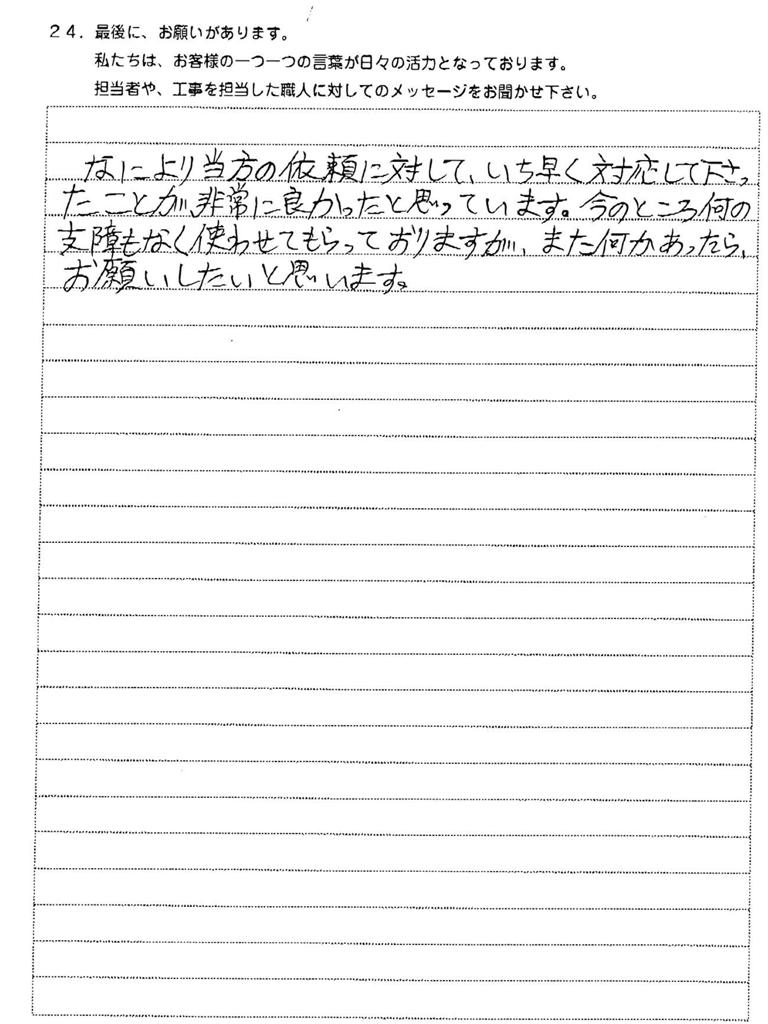 24. 最後に、お願いがあります。
私たちは、お客様の一つ一つの言葉が日々の活力となっております。
担当者や、工事を担当した職人に対してのメッセージをお聞かせ下さい。
なにより当方の依頼に対して、いち早く対応して下さっ
たことが、非常に良かったと思っています。今のところ何の
支障もなく使わせてもらっておりますが、また何かあったら、
お願いしたいと思います。